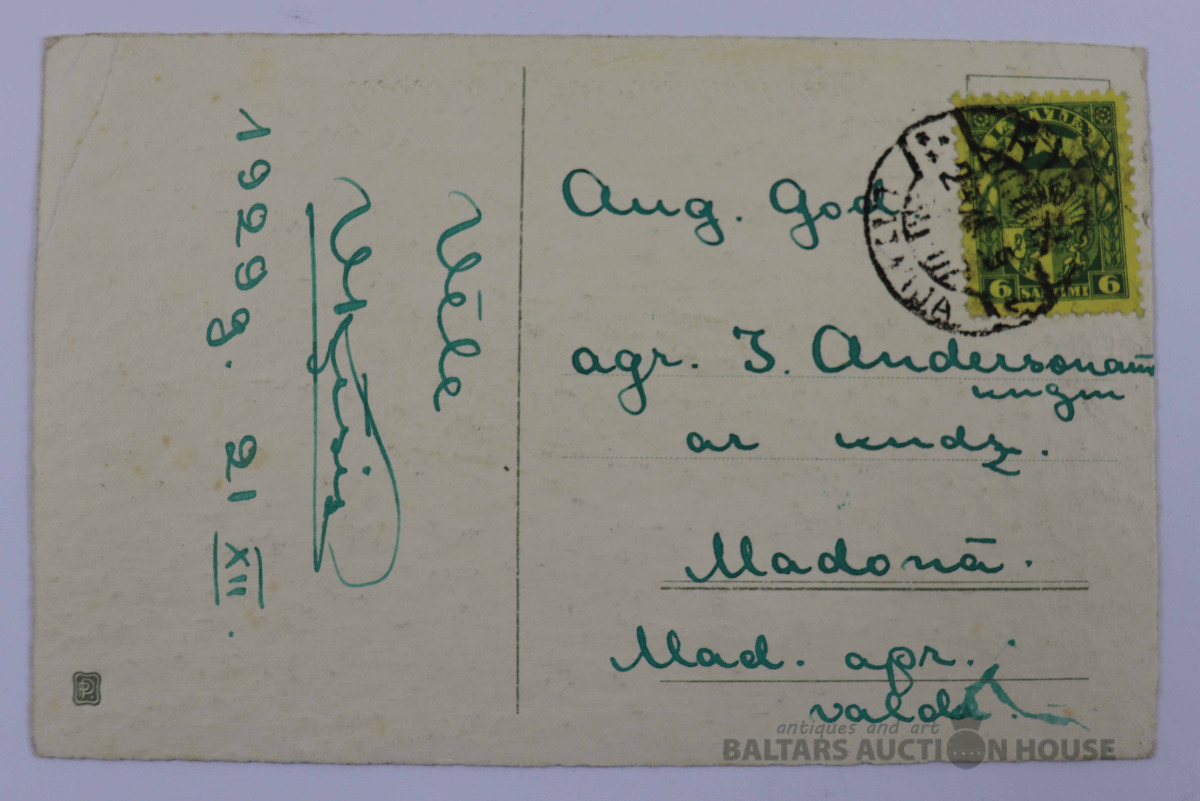 Vēle
1929 g. 21 XII.
Aug. God.
agr. J. Andersonam
kungm
ar kundz.
Madonā.
Mad. apr.
valdē.
LATVIJA
6 SANTIMI 6
LATVIJA
antiques and art
BALTARS AUCTION HOUSE